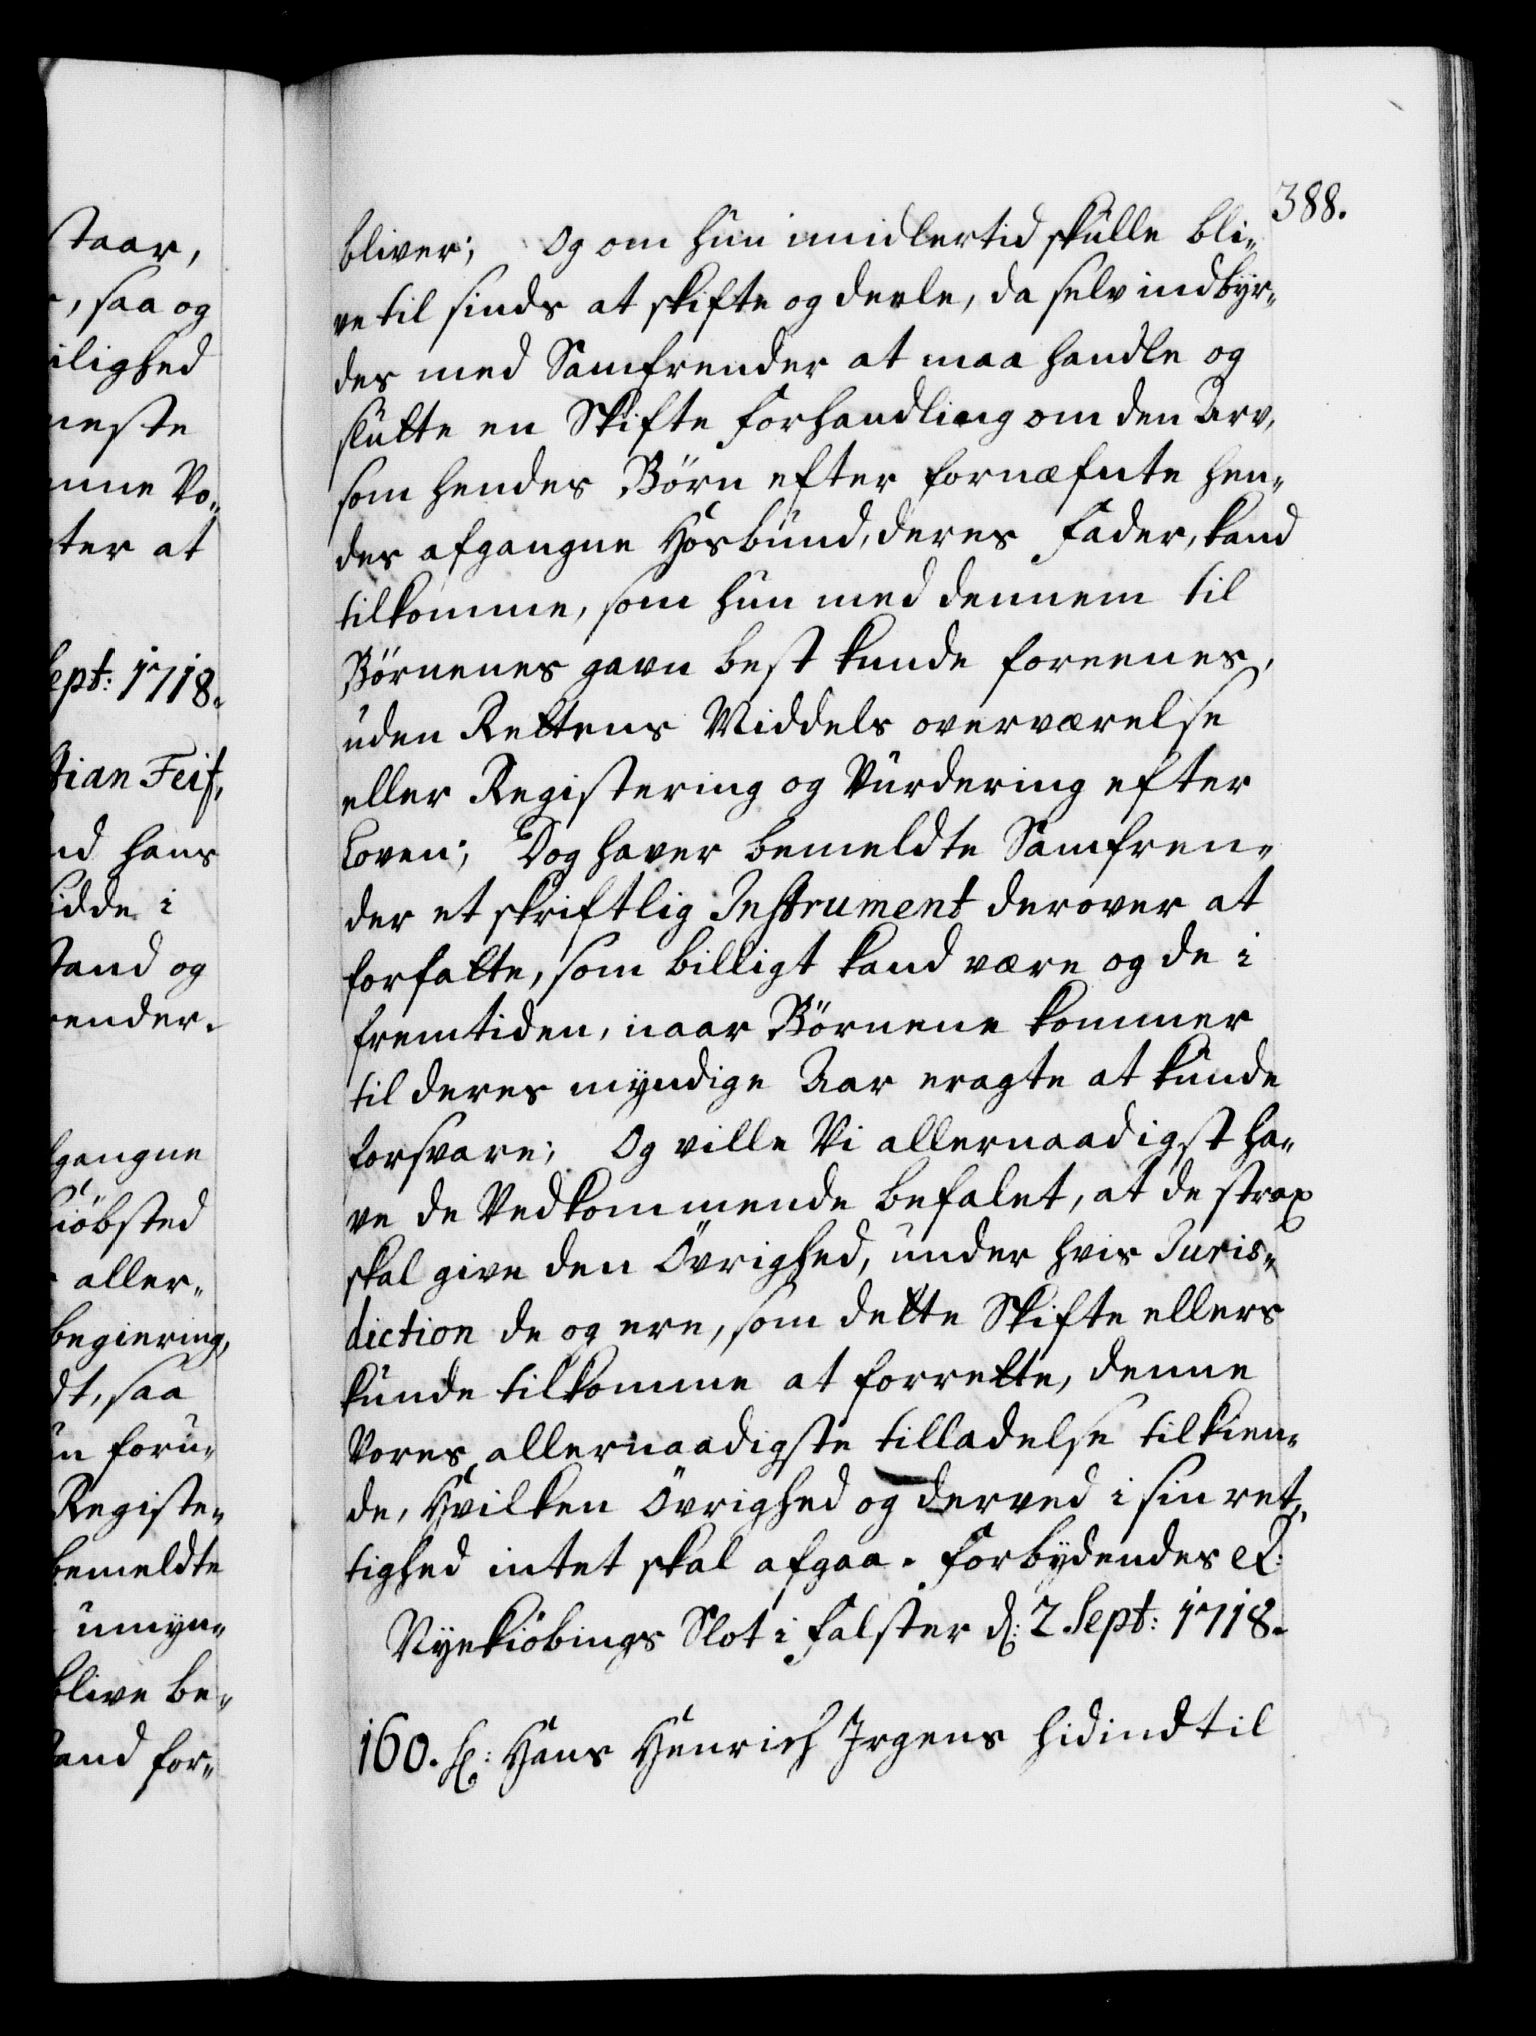 388.
bliver; Og om hun imidlertid skulle bli¬
ve til sinds at skifte og deele, da selv indbyr¬
des med Samfrender at maa handle og
slutte en Skifte forhandling om den Arv,
som hendes Börn efter fornæfnte hen¬
des afgangne Hosbund, deres Fader, kand
tilkomme, som hun med dennem til
Börnenes gavn best kunde foreenes,
uden Rettens Middels overværelse
eller Registering og Vurdering efter
Loven; Dog haver bemeldte Samfren¬
der et skriftlig Instrument derover at
forfatte, som billigt kand være og de i
fremtiden, naar Börnene kommer
til deres myndige Aar eragte at kunde
forsvare; Og ville Vi allernaadigst ha¬
ve de Vedkommende befalet, at de strax
skal give den Övrighed, under hvis Juris¬
diction de og ere, som dette Skifte ellers
kunde tilkomme at forrette, denne
Vores allernaadigste tilladelse tilkien¬
de, Hvilken Övrighed og derved i sin ret¬
tighed intet skal afgaa. Forbydendes etc:
Nyekiöbings Slot i Falster d: 2 Sept: 1718.
160. Hans Henrich Jrgens hidindtil
staar,
, saa og
ilighed
neste
nne Vo¬
ter at
Sept: 1718.
tian Feif,
nd hans
sidde i
stand og
render.
fgangne
kiöbsted
aller¬
begiering,
dt, saa
un foru¬
Registe¬
bemeldte
umyn¬
blive be¬
stand for¬